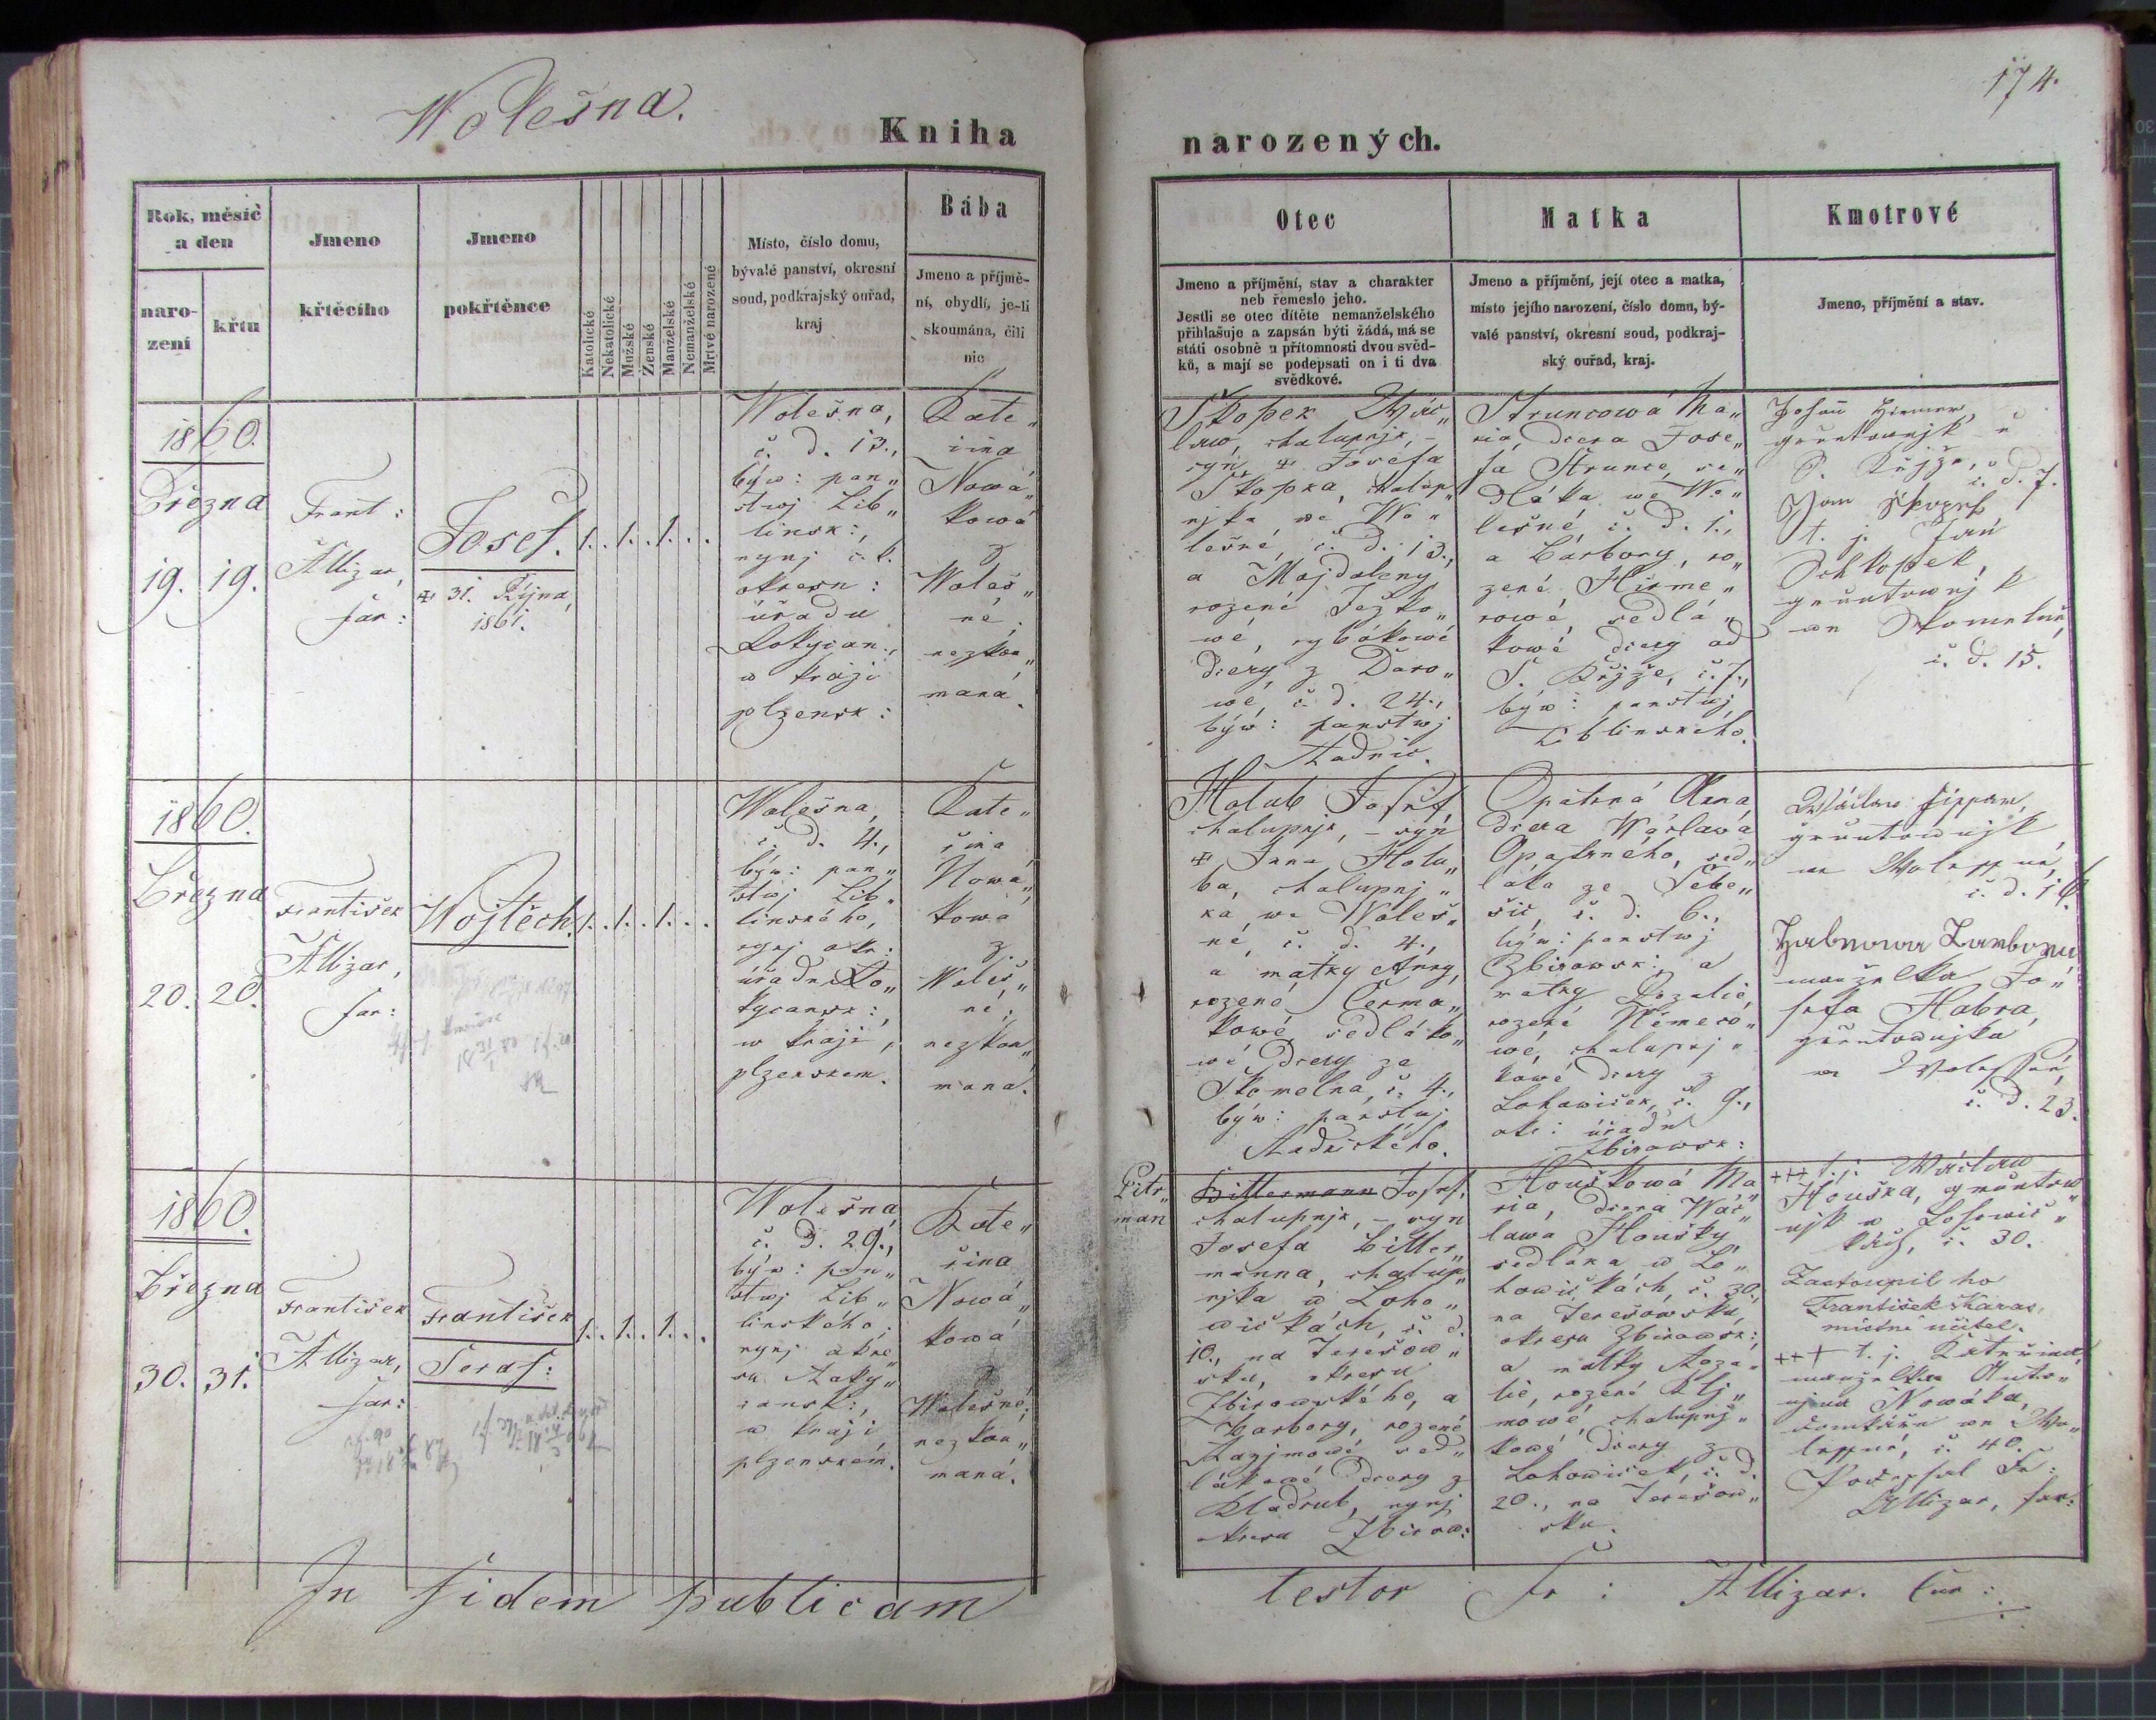 174.
Wolešna.
Kniha
narozených.
Rok, měsíc
a den
naro-
zení
křtu
Jmeno
křtěcího
Jmeno
pokřtěnce
Katolické
Nekatolické
Mužské
Ženské
Manželské
Nemanželské
Mrtvě narozené
Místo, číslo domu,
bývalé panství, okresní
soud, podkrajský ouřad,
kraj
Bába
Jmeno a příjmě-
ní, obydlí, je-li
skoumána, čili
nic
Otec
Jmeno a příjmění, stav a charakter
neb řemeslo jeho.
Jestli se otec dítěte nemanželského
přihlašuje a zapsán býti žádá, má se
státi osobně u přítomnosti dvou svěd-
ků, a mají se podepsati on i ti dva
svědkové.
Matka
Jmeno a příjmění, její otec a matka,
místo jejího narození, číslo domu, bý-
valé panství, okresní soud, podkraj-
ský ouřad, kraj.
Kmotrové
Jmeno, příjmění a stav.
1860.
Března
19. 19.
Frant:
Allizar,
far:
Josef.
✠ 31. Října,
1861.
1. . 1. . 1. . .
Wolešna,
č. d. 13.,
býw: pan„
stwj Lib„
linsk:,
nynj c. k.
okresn:
úřadu
Rokycan.,
w kraji
plzensk:
Kate„
řina
Nowá„
kowá
z
Woleš„
né,
nezkou„
maná.
Skopek Wác„
law, chalupnjk, –
syn ✠ Josefa
Skopka, chalup„
njka we Wo„
lešné, č. d. 13.,
a Majdaleny
rozené Ježko„
wé, rybákowé
dcery z Daro„
wé, č. d. 24.,
býw: panstwj
Radnic.
Štruncowá Ma„
ria, dcera Jose„
fa Štrunce, se„
dláka we Wo„
lešné, č. d. 1.,
a Barbory, ro„
zené Hirme„
rowé, sedlá„
kowé dcery od
S. Křjže, č. 7.,
býw: panstwj
Liblinského.
Johan Hirmer,
grůntownjk u
S. Křjže, č. d. 7.
Jan Skopek
t. j. Jan
Schkopek,
gruntownjk
we Skomelně,
č. d. 15.
1860.
Března
20. 20.
František
Allizar,
far:
Wojtěch.
1. . 1. . 1. . .
Wolešna,
č. d. 4.,
býw: pan„
stwj Lib„
linského,
nynj okr:
úřadu Ro„
kycansk:,
w kraji,
plzenskem.
Kate„
řina
Nowá„
kowá
z
Woleš„
né,
nezkou„
maná.
Holub Josef,
chalupnjk, – syn
✠ Jana Holu„
ba, chalupnj„
ka, we Woleš„
né, č. d. 4.,
a matky Anny,
rozené Čerma„
kowé, sedláko„
wé dcery ze
Skomelna, č. 4.,
býw: panstwj
Radnického.
Opatrná Anna,
dcera Wáclawa
Opatrného, sed„
láka ze Sebe„
šic, č. d. 6.,
býw: panstwj
Zbirowsk:, a
matky Rozalie,
rozené Němeco„
wé, chalupnj„
kowé dcery z
Lohowiček, č. 9.,
okr: úřadu
Zbirowsk:
grůntownjk
we Woleschné,
č. d. 16.
Habrowa Barbora
manželka Jo„
sefa Habra,
grůntownjka
we Woleschné,
č. d. 23.
1860.
Března
30. 31.
František
Allizar,
far:
František
Seraf:
1. . 1. . 1. . .
Wolešna,
č. d. 29.,
býw: pan„
stwj Lib„
linského,
nynj okre„
su Roky„
cansk:,
w kraji
plzenskem.
Kate„
řina
Nowá„
kowá
z
Wolešné,
nezkou„
maná.
Pitr„
man
Bittermann Josef,
chalupnjk, – syn
Josefa Bitter„
manna, chalup„
njka w Loho„
wičkách, č. d.
10., na Terešow„
sku, okresu
Zbirowského, a
Barbory, rozené
Rayjmowé sed„
lákowé dcery z
Kladrub, nynj
okresu Zbirow:
Houškowá Ma„
ria, dcera Wác„
lawa Houšky
sedláka w Lo„
howičkách, č. 30.
na Terešowsku,
okresu Zbirowsk:
a matky Roza„
lie, rozené
chalupnj„
kowé dcery z
Lohowiček, č. d.
20., na Terešow„
sku.
+++ t. j. Wáclaw
Houška, grůntow„
njk w Lohowič„
kách, č. 30.
Zastoupil ho
František Karas,
místní učitel.
+++ t. j. Kateřina,
manželka Anto„
njna Nowáka,
domkáře we Wo„
leschné, č. 40.
Podepsal Fr:
Allizar, far:
In fidem publicam
testor Fr: Allizar. Cur: